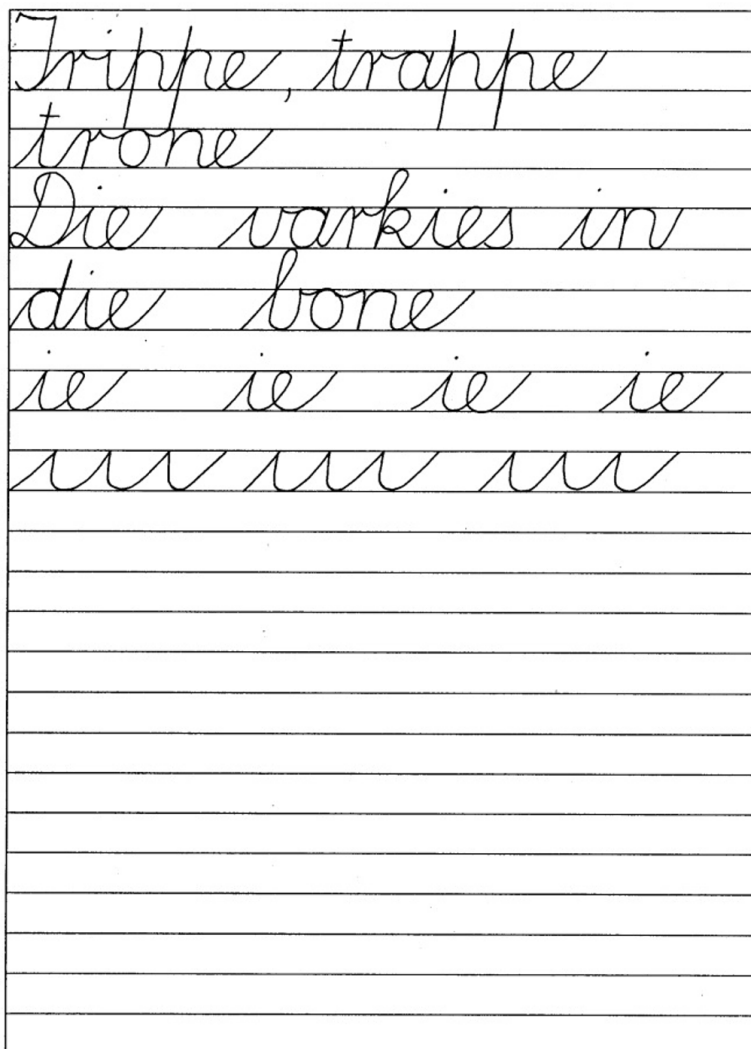 Trippe, trappe
trone
Die varkies in
die bone
ie ie ie ie